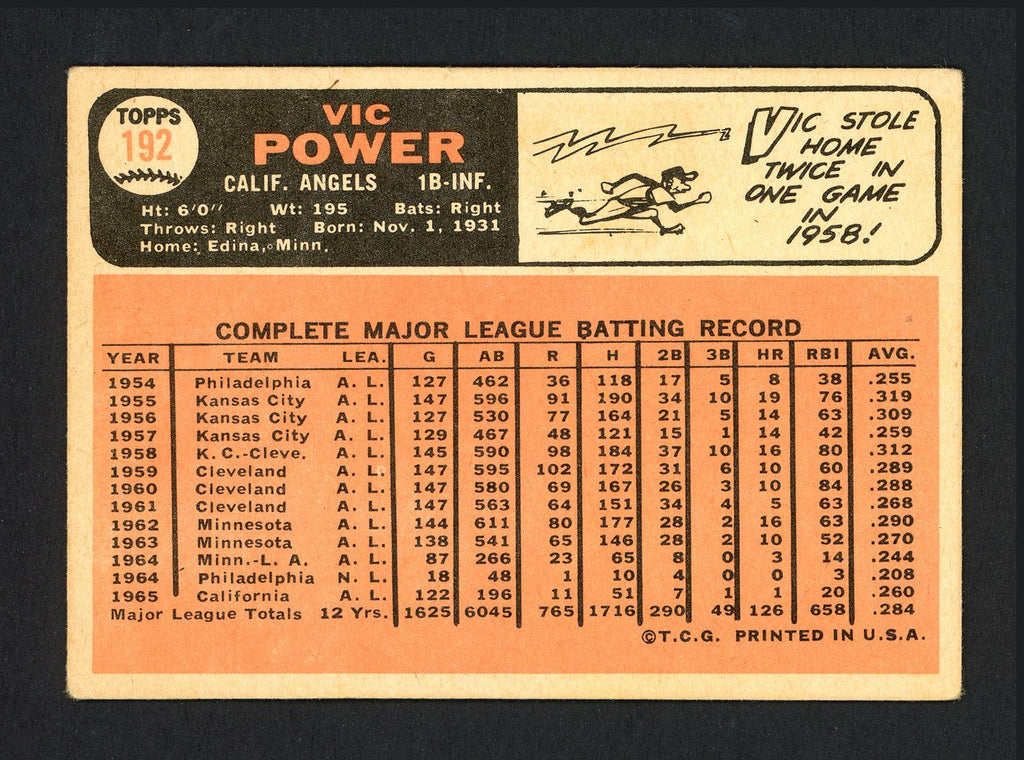 TOPPS
192
VIC
POWER
CALIF. ANGELS 1B-INF.
Ht: 6'0" Wt: 195 Bats: Right
Throws: Right Born: Nov. 1, 1931
Home: Edina, Minn.
VIC STOLE
HOME
TWICE IN
ONE GAME
IN
1958!
COMPLETE MAJOR LEAGUE BATTING RECORD
YEAR TEAM LEA. G AB R H 2B 3B HR RBI AVG.
1954 Philadelphia A. L. 127 462 36 118 17 5 8 38 .255
1955 Kansas City A. L. 147 596 91 190 34 10 19 76 .319
1956 Kansas City A. L. 127 530 77 164 21 5 14 63 .309
1957 Kansas City A. L. 129 467 48 121 15 1 14 42 .259
1958 K. C.-Cleve. A. L. 145 590 98 184 37 10 16 80 .312
1959 Cleveland A. L. 147 595 102 172 31 6 10 60 .289
1960 Cleveland A. L. 147 580 69 167 26 3 10 84 .288
1961 Cleveland A. L. 147 563 64 151 34 4 5 63 .268
1962 Minnesota A. L. 144 611 80 177 28 2 16 63 .290
1963 Minnesota A. L. 138 541 65 146 28 2 10 52 .270
1964 Minn.-L. A. A. L. 87 266 23 65 8 0 3 14 .244
1964 Philadelphia N. L. 18 48 1 10 4 0 0 3 .208
1965 California A. L. 122 196 11 51 7 1 1 20 .260
Major League Totals 12 Yrs. 1625 6045 765 1716 290 49 126 658 .284
©T.C.G. PRINTED IN U.S.A.